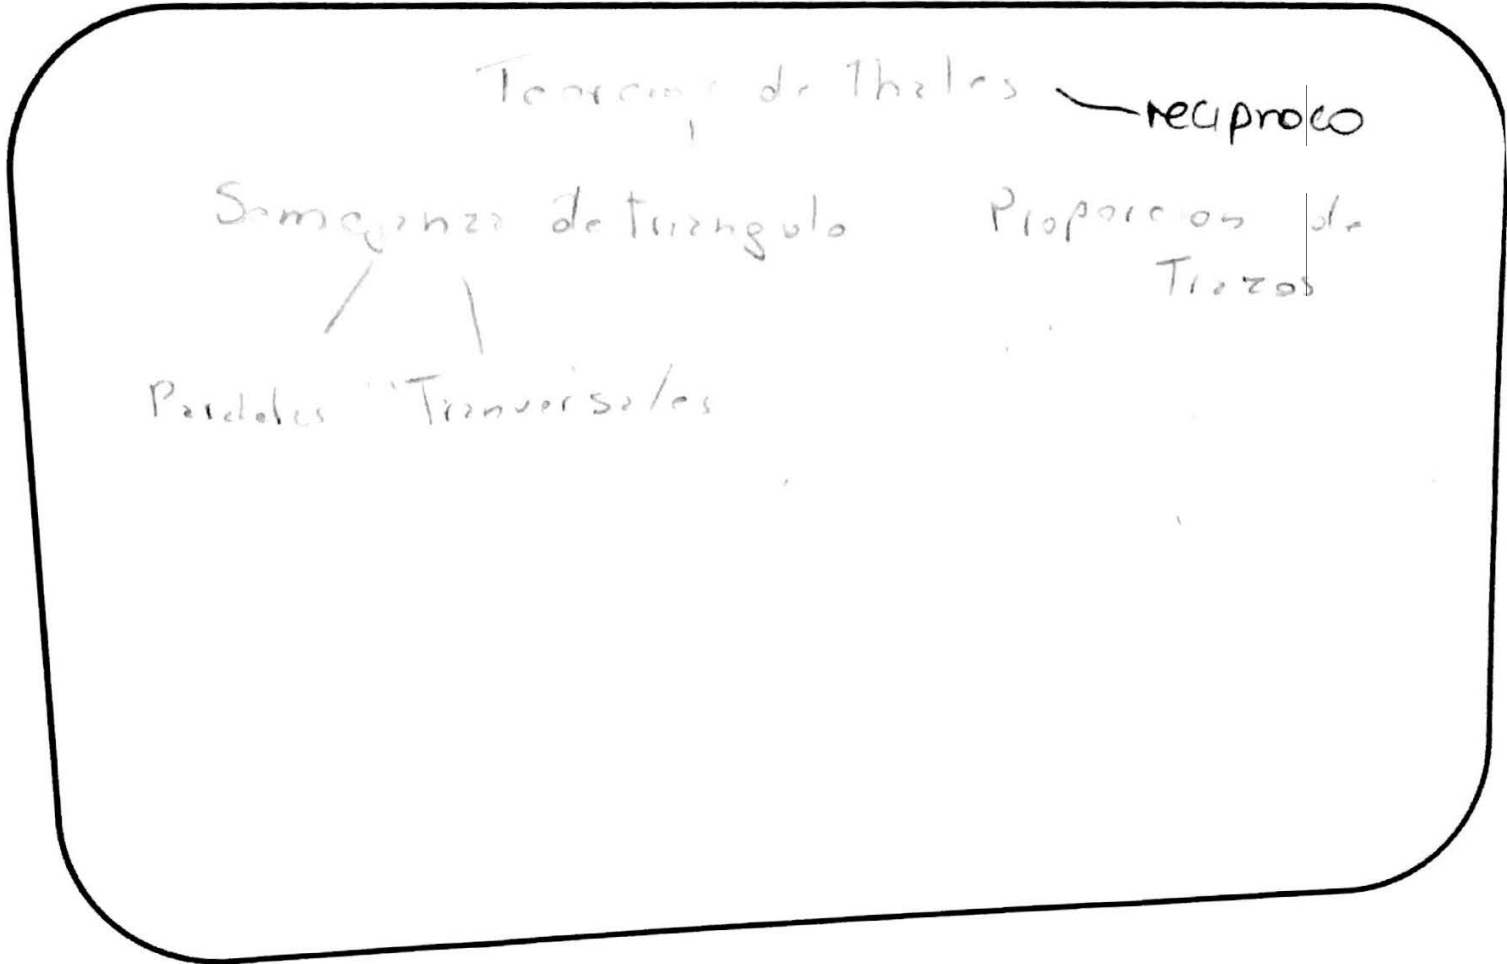 Teorema de Thales
reciproco
Semejanza de triangulo
Proporcion de
Trazos
Paralelas Tranversales